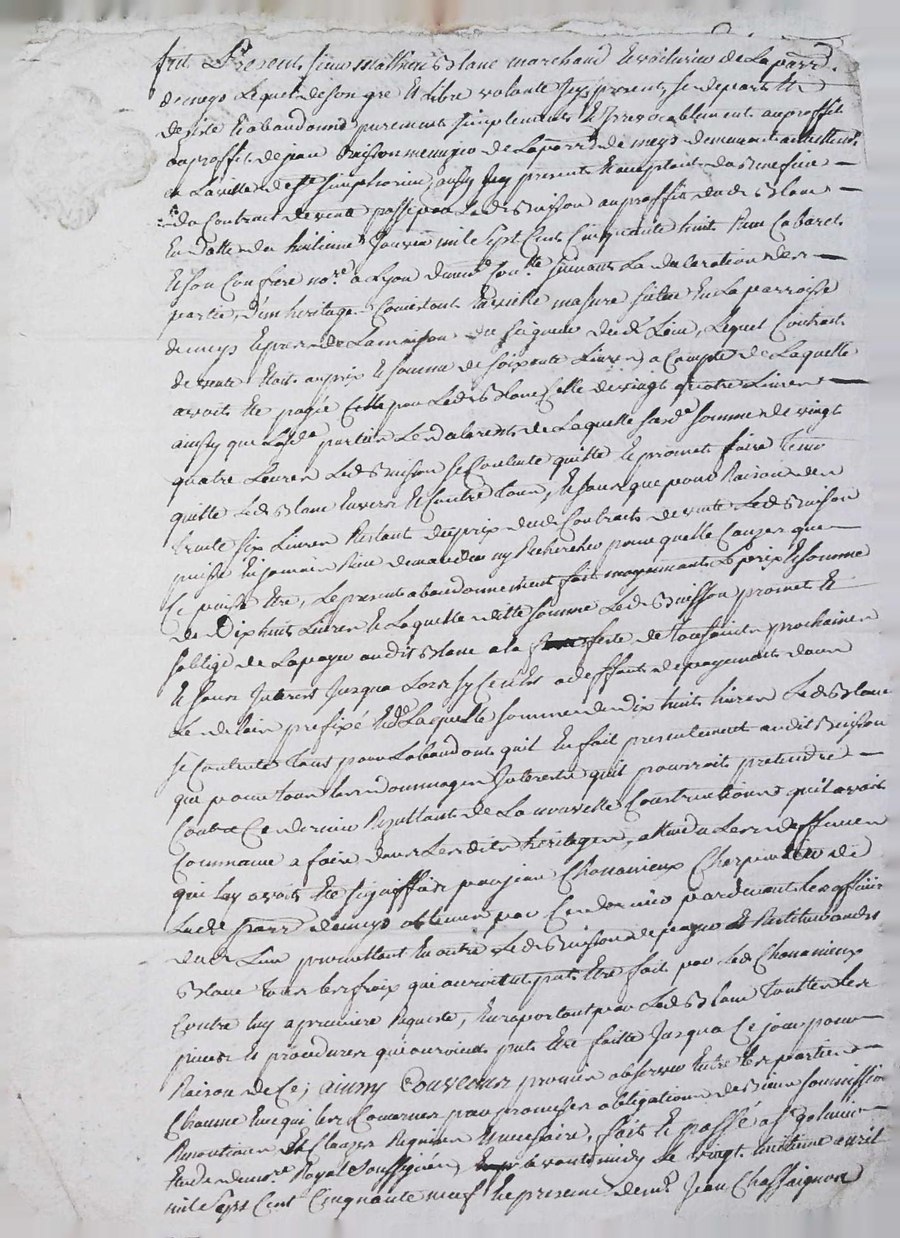 fut Present sieur mathieu Blanc marchand Et voiturier de La parr.
de meys Lequel de son gré Et Libre volonté Ses presents se depart Et
desiste Et abandonne purement simplement Et Irrevocablement au proffit
au proffit de jean Buisson de La parr. de meys demeurant
de La ville de St Simphorien, aussy presents Et acceptant du Benefice
du Contract de vente passé par Led. Buisson au proffit dud. Blanc
En datte du huitieme Janvier mil Sept Cent Cinquante huit Reçu Cabaret
Et son Confrere nore a Lyon suivant La declaration des
partie d'un heritage Consistant En vielle masure situé En La parroisse
de meys Et pres de La maison du seigneur dud. Lieu, Lequel Contract
de vente Etoit au prix Et somme de soixante Livres a Compte de Laquelle
avoit Eté payée Celle par Led. Blanc Celle de vingt quatre Livres
ainsy que Lesd. parties Le declarent de Laquelle susd. somme de vingt
quatre Livres Led. Buisson se Contente quitte Et promet faire tenir
quitte Led. Blanc Envers Et Contre tous, Et sans que pour Raison des
trente six Livres Restant du prix dud. Contract de vente Led. Buisson
puisse En jamais Rien demander ny Rechercher pour quelle Cause que
Ce puisse Etre, Le present abandonnement fait moyennant Le prix Et somme
de Dix huit Livres Et Laquelle ditte somme Led. Buisson promet Et
s'oblige de La payer audit Blanc a la feste de Toussaints prochaine
Et sans Interest Jusqu'a Lors sy Ce n'est a deffaut de payement dans
Le delais prefixé Et de Laquelle somme de dix huit Livres Led. Blanc
se Contente tant pour L'abandont quil En fait presentement audit Buisson
que pour tous les dommages Interests quil pourroit pretendre
Contre Ce dernier Resultant de La nouvelle Construction quil avoit
Commancé a faire dans Lesdits heritages, attendu Les deffences
qui luy avoit Eté signiffiée par jean Chouanieux Charpentier de
Lad. parr. de meys obtenue par Ce dernier pardevant Les officiers
dud. Lieu promettant En outre Led. Buisson de payer Et Restituer aud.
Blanc tous les fraix qui auroient puts Etre fait par Led. Chouanieux
Contre luy a premiere Requiste, En raportant par Led. Blanc touttes les
pieces Et procedures qui auroient puts Etre faitte Jusqu'a Ce jour pour
Raison de Ce; ainsy Convenus promis observer Entre Les parties
Chacune En ce qui les Concernes par promesses obligation de Biens soumission
Renontiation Et Clauzes Requises Et necessaire, fait Et passé a St
Etude du nore Royal soussignée, avant midy Le vingt huitieme avril
mil Sept Cent Cinquante neuf En presence de Jean Chassaignon